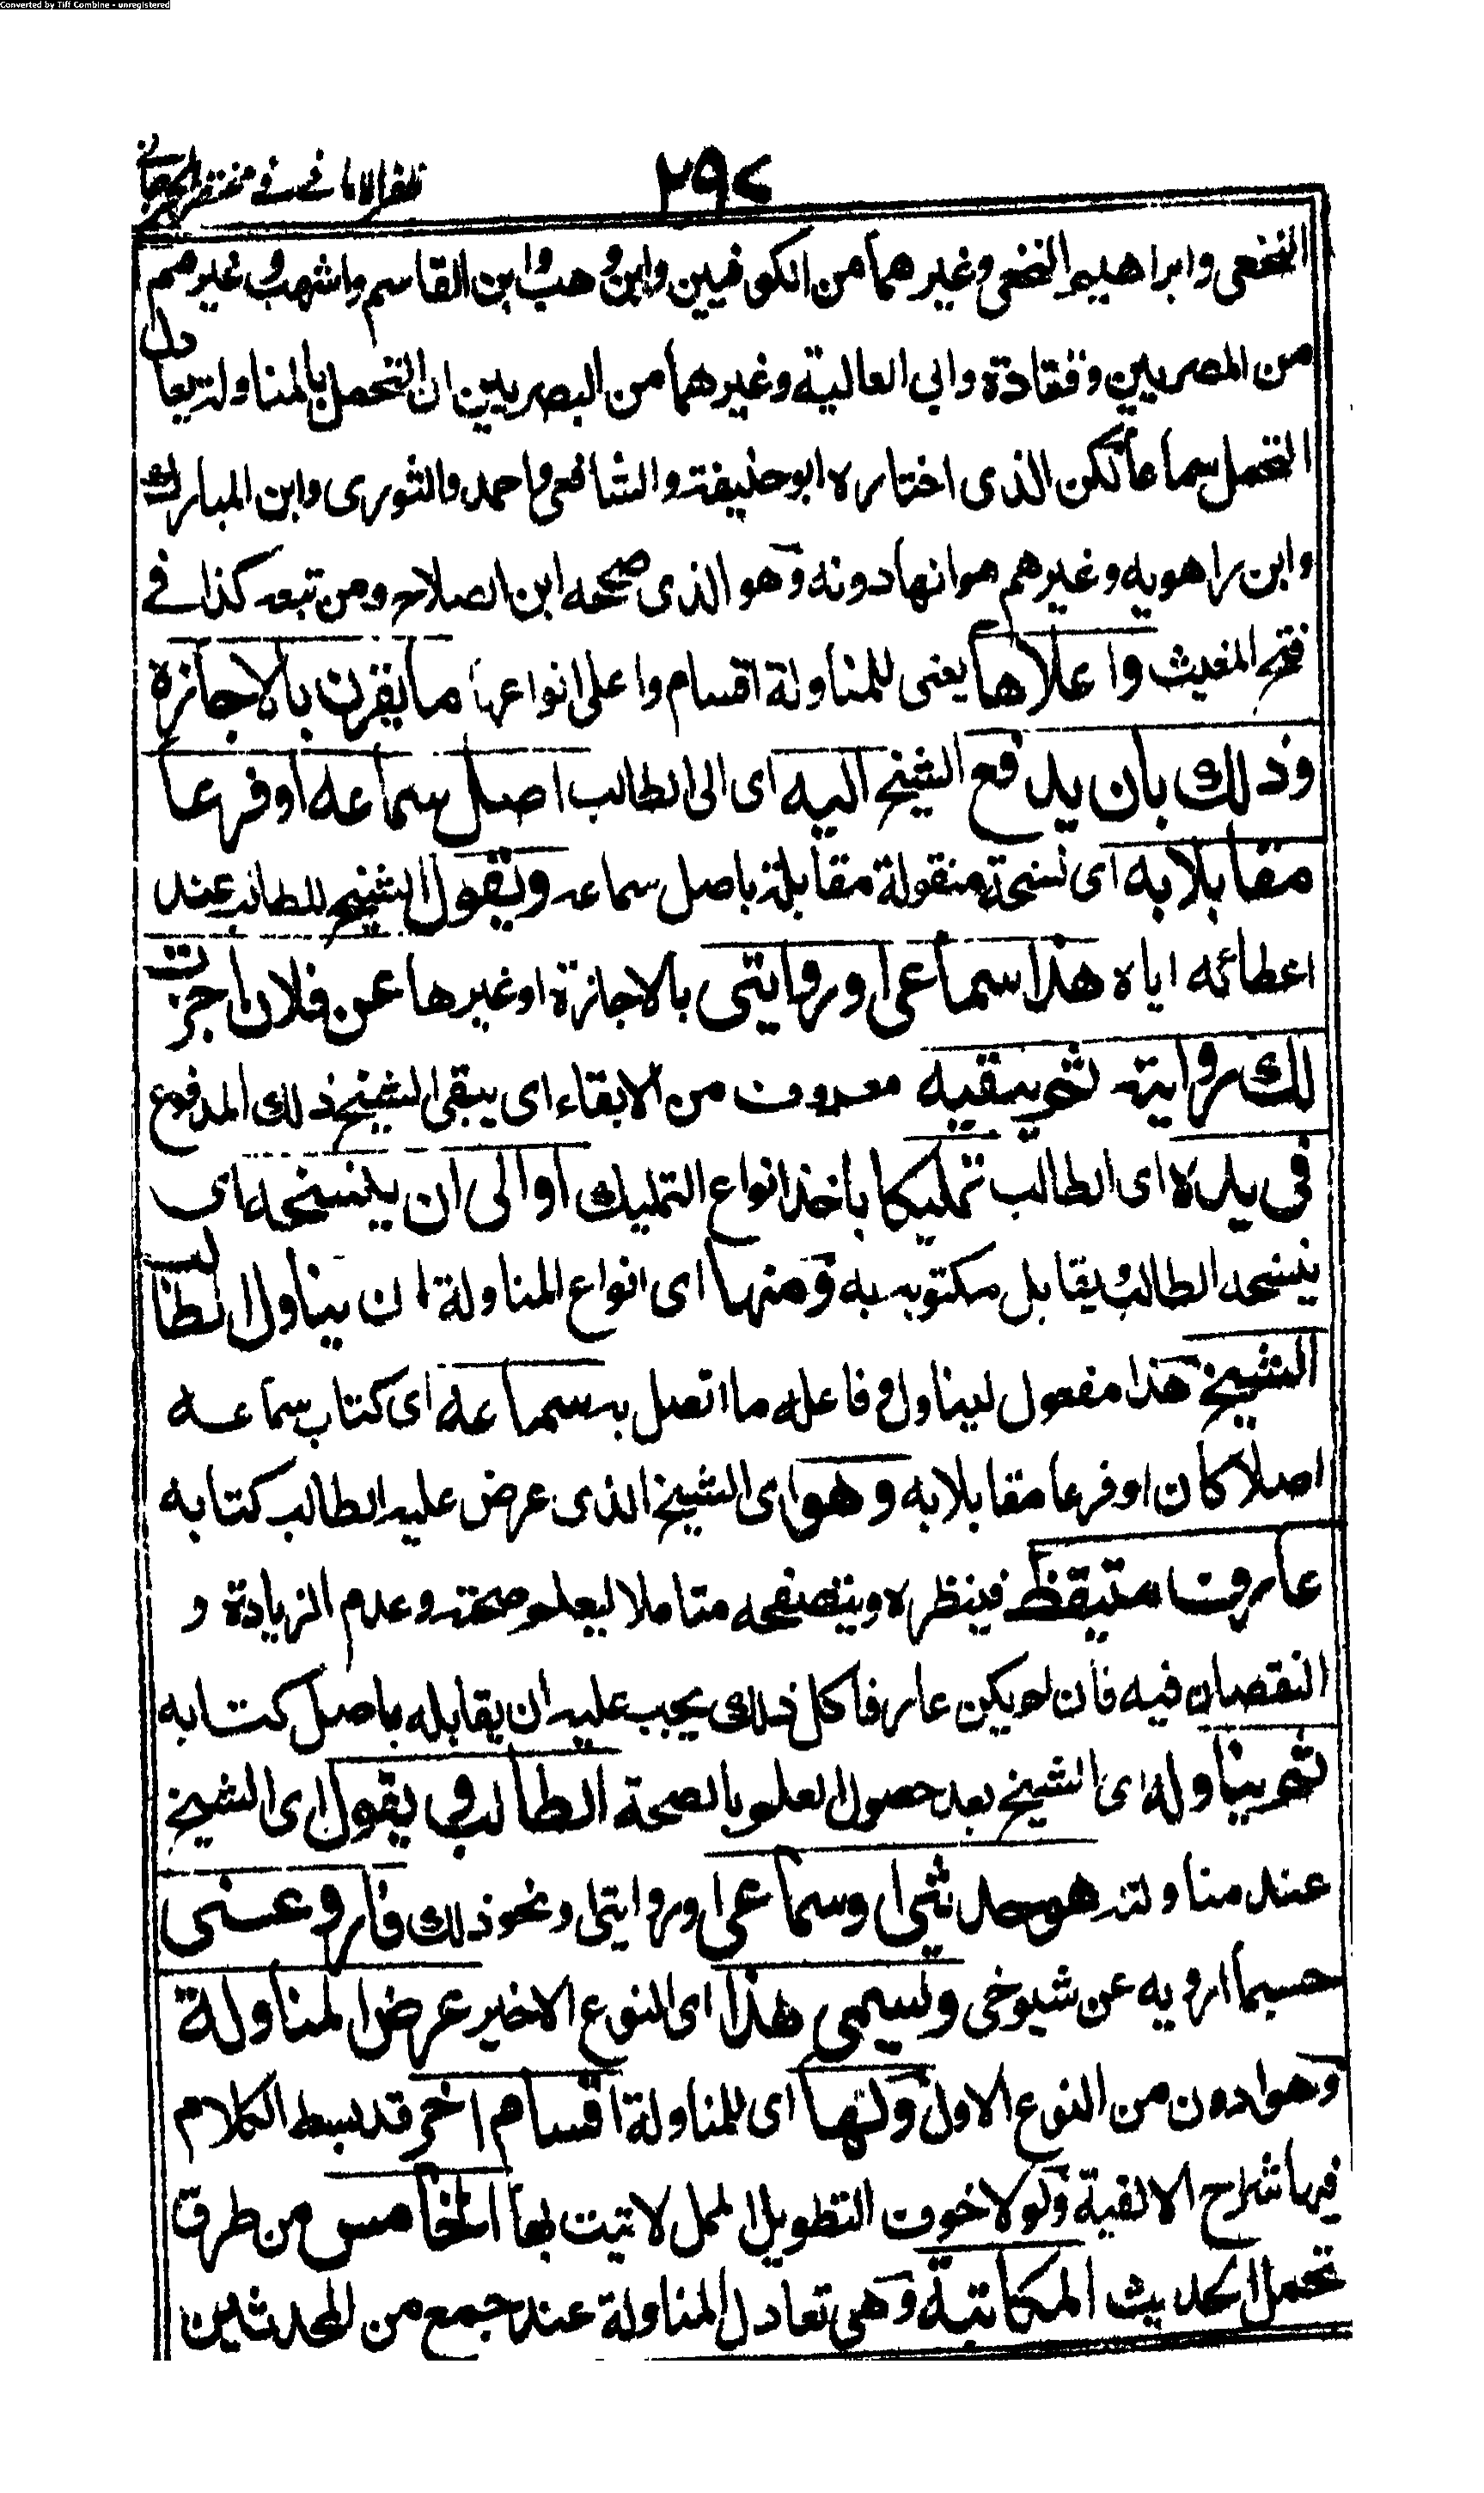 Converted by Tiff Combine - unregistered
ظفر الامانى فى مختصر الجرجانى
٢٩٢
النخعى وابراهيم النخعى وغيرهما من الكوفيين وابن وهب وابن القاسم واشهب وغيرهم
من المصريين وقتادة وابى العالية وغيرهما من البصريين ان التحمل بالمناولة يعادل
التحمل سماعا لكن الذى اختاره ابو حنيفة والشافعى واحمد والثورى وابن المبارك
وابن راهويه وغيرهم هو انها دونه وهو الذى صححه ابن الصلاح ومن تبعه كذا فى
فتح المغيث واعلاها يعنى للمناولة اقسام واعلى انواعها ما يقرن بالاجازة
وذلك بان يدفع الشيخ اليه اى الى الطالب اصل سماعه او فرعا
مقابلا به اى نسخة منقولة مقابلة باصل سماعه ويقول الشيخ للطالب عند
اعطائه اياه هذا سماعى او روايتى بالاجازة او غيرها عن فلان اجزت
لك روايته ثم يبقيه معروف من الابقاء اى يبقى الشيخ ذلك المدفوع
فى يده اى الطالب تمليكا باخذ انواع التمليك او الى ان ينسخه اى
ينسخه الطالب ويقابل مكتوبه به ومنها اى انواع المناولة ان يناول الطالب
الشيخ هذا مفعول ليناول وفاعله ما اتصل به سماعه اى كتاب سماعه
اصلا كان او فرعا مقابلا به وهو اى الشيخ الذى عرض عليه الطالب كتابه
عارف متيقظ فينظره ويتصفحه متاملا ليعلم صحته وعدم الزيادة و
النقصان فيه فان لم يكن عارفا كل ذلك يجب عليه ان يقابله باصل كتابه
ثم يناوله اى الشيخ بعد حصول العلم بالصحة الطالب ويقول اى الشيخ
عند مناولته هو حديثى او سماعى او روايتى ونحو ذلك فاروعنى
حسبما ارويه عن شيوخى ويسمى هذا اى النوع الاخير عرض المناولة
وهو ادون من النوع الاول ولها اى للمناولة اقسام اخر قد بسط الكلام
فيها شراح الالفية ولولا خوف التطويل الممل لاتيت بها الخامس من طرق
تحمل الحديث المكاتبة وهى تعادل المناولة عند جمع من المحدثين